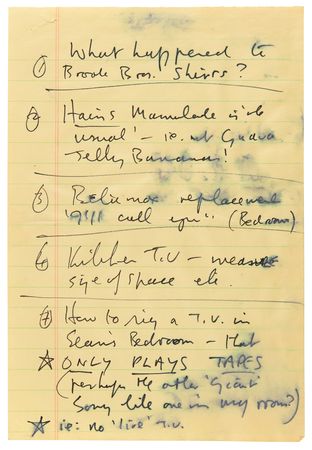 ① What happened to
Brooks Bros. Shirts?
② Hains Mamulade is 'the
usual' – ie. not Guava
Jelly Bananas!
③ replacement
"9'11 call equi" (Bedroom)
④ Kitchen T.V – measure
size of space etc.
⑦ How to rig a T.V. in
Sean's Bedroom – that
☆ ONLY PLAYS TAPES
(perhaps the other 'Giant'
Sony like one in my room?)
☆ ie: no 'live' T.V.